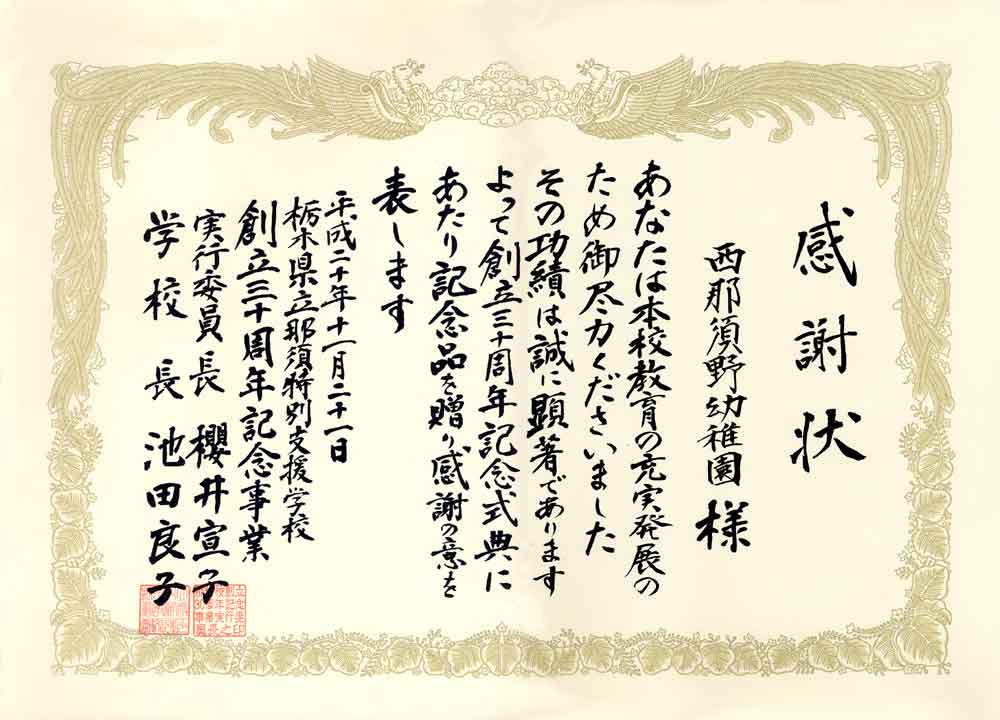 感謝状
西那須野幼稚園 様
あなたは本校教育の充実発展の
ため御尽力くださいました
その功績は誠に顕著であります
よって創立三十周年記念式典に
あたり記念品を贈り感謝の意を
表します
平成二十年十一月二十一日
栃木県立那須特別支援学校
創立三十周年記念事業
実行委員長 櫻井宣子
学校長 池田良子